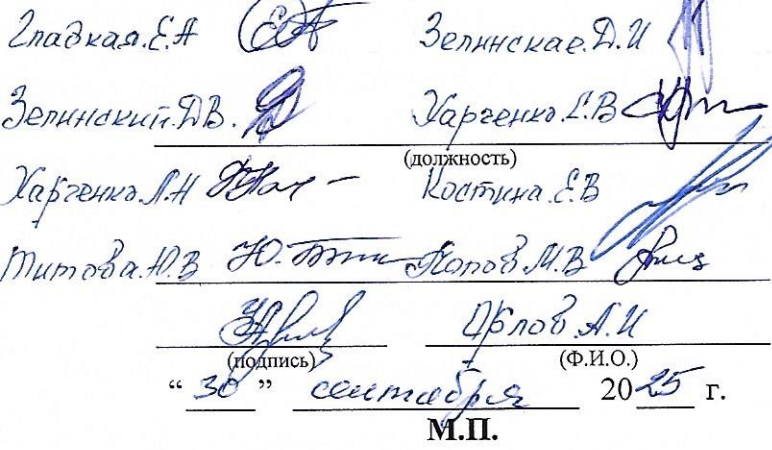 Гладкая.Е.А Зелинская.Д.И
Зелинский.Д.В. Харченко.С.В
(должность)
Харченко.Л.Н Костина.Е.В
Титова.Ю.В Попов.М.В
Орлов.А.И
(подпись) (Ф.И.О.)
“ 30 ” сентября 2025 г.
М.П.